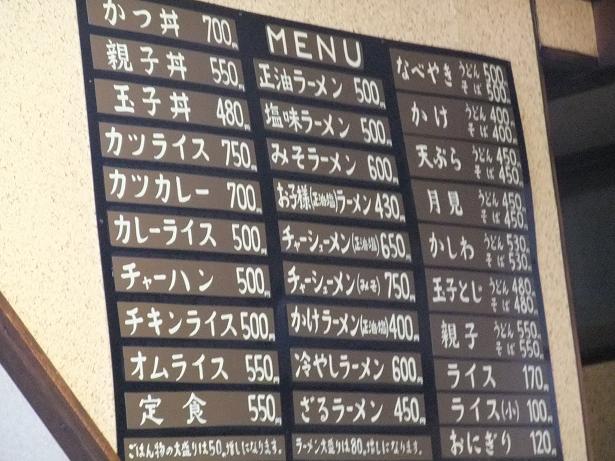 MENU
かつ丼 700円
親子丼 550円
玉子丼 480円
カツライス 750円
カツカレー 700円
カレーライス 500円
チャーハン 500円
チキンライス 500円
オムライス 550円
定食 550円
ごはん物の大盛りは50円増しになります。
正油ラーメン 500円
塩味ラーメン 500円
みそラーメン 600円
お子様(正油・塩)ラーメン 430円
チャーシューメン(正油・塩) 650円
チャーシューメン(みそ) 750円
かけラーメン(正油・塩) 400円
冷やしラーメン 600円
ざるラーメン 450円
ラーメン大盛りは80円増しになります。
なべやき うどん 500円
そば 500円
かけ うどん 400円
そば 400円
天ぷら うどん 450円
そば 450円
月見 うどん 450円
そば 450円
かしわ うどん 530円
そば 530円
玉子とじ うどん 480円
そば 480円
親子 うどん 550円
そば 550円
ライス 170円
ライス(小) 100円
おにぎり 120円